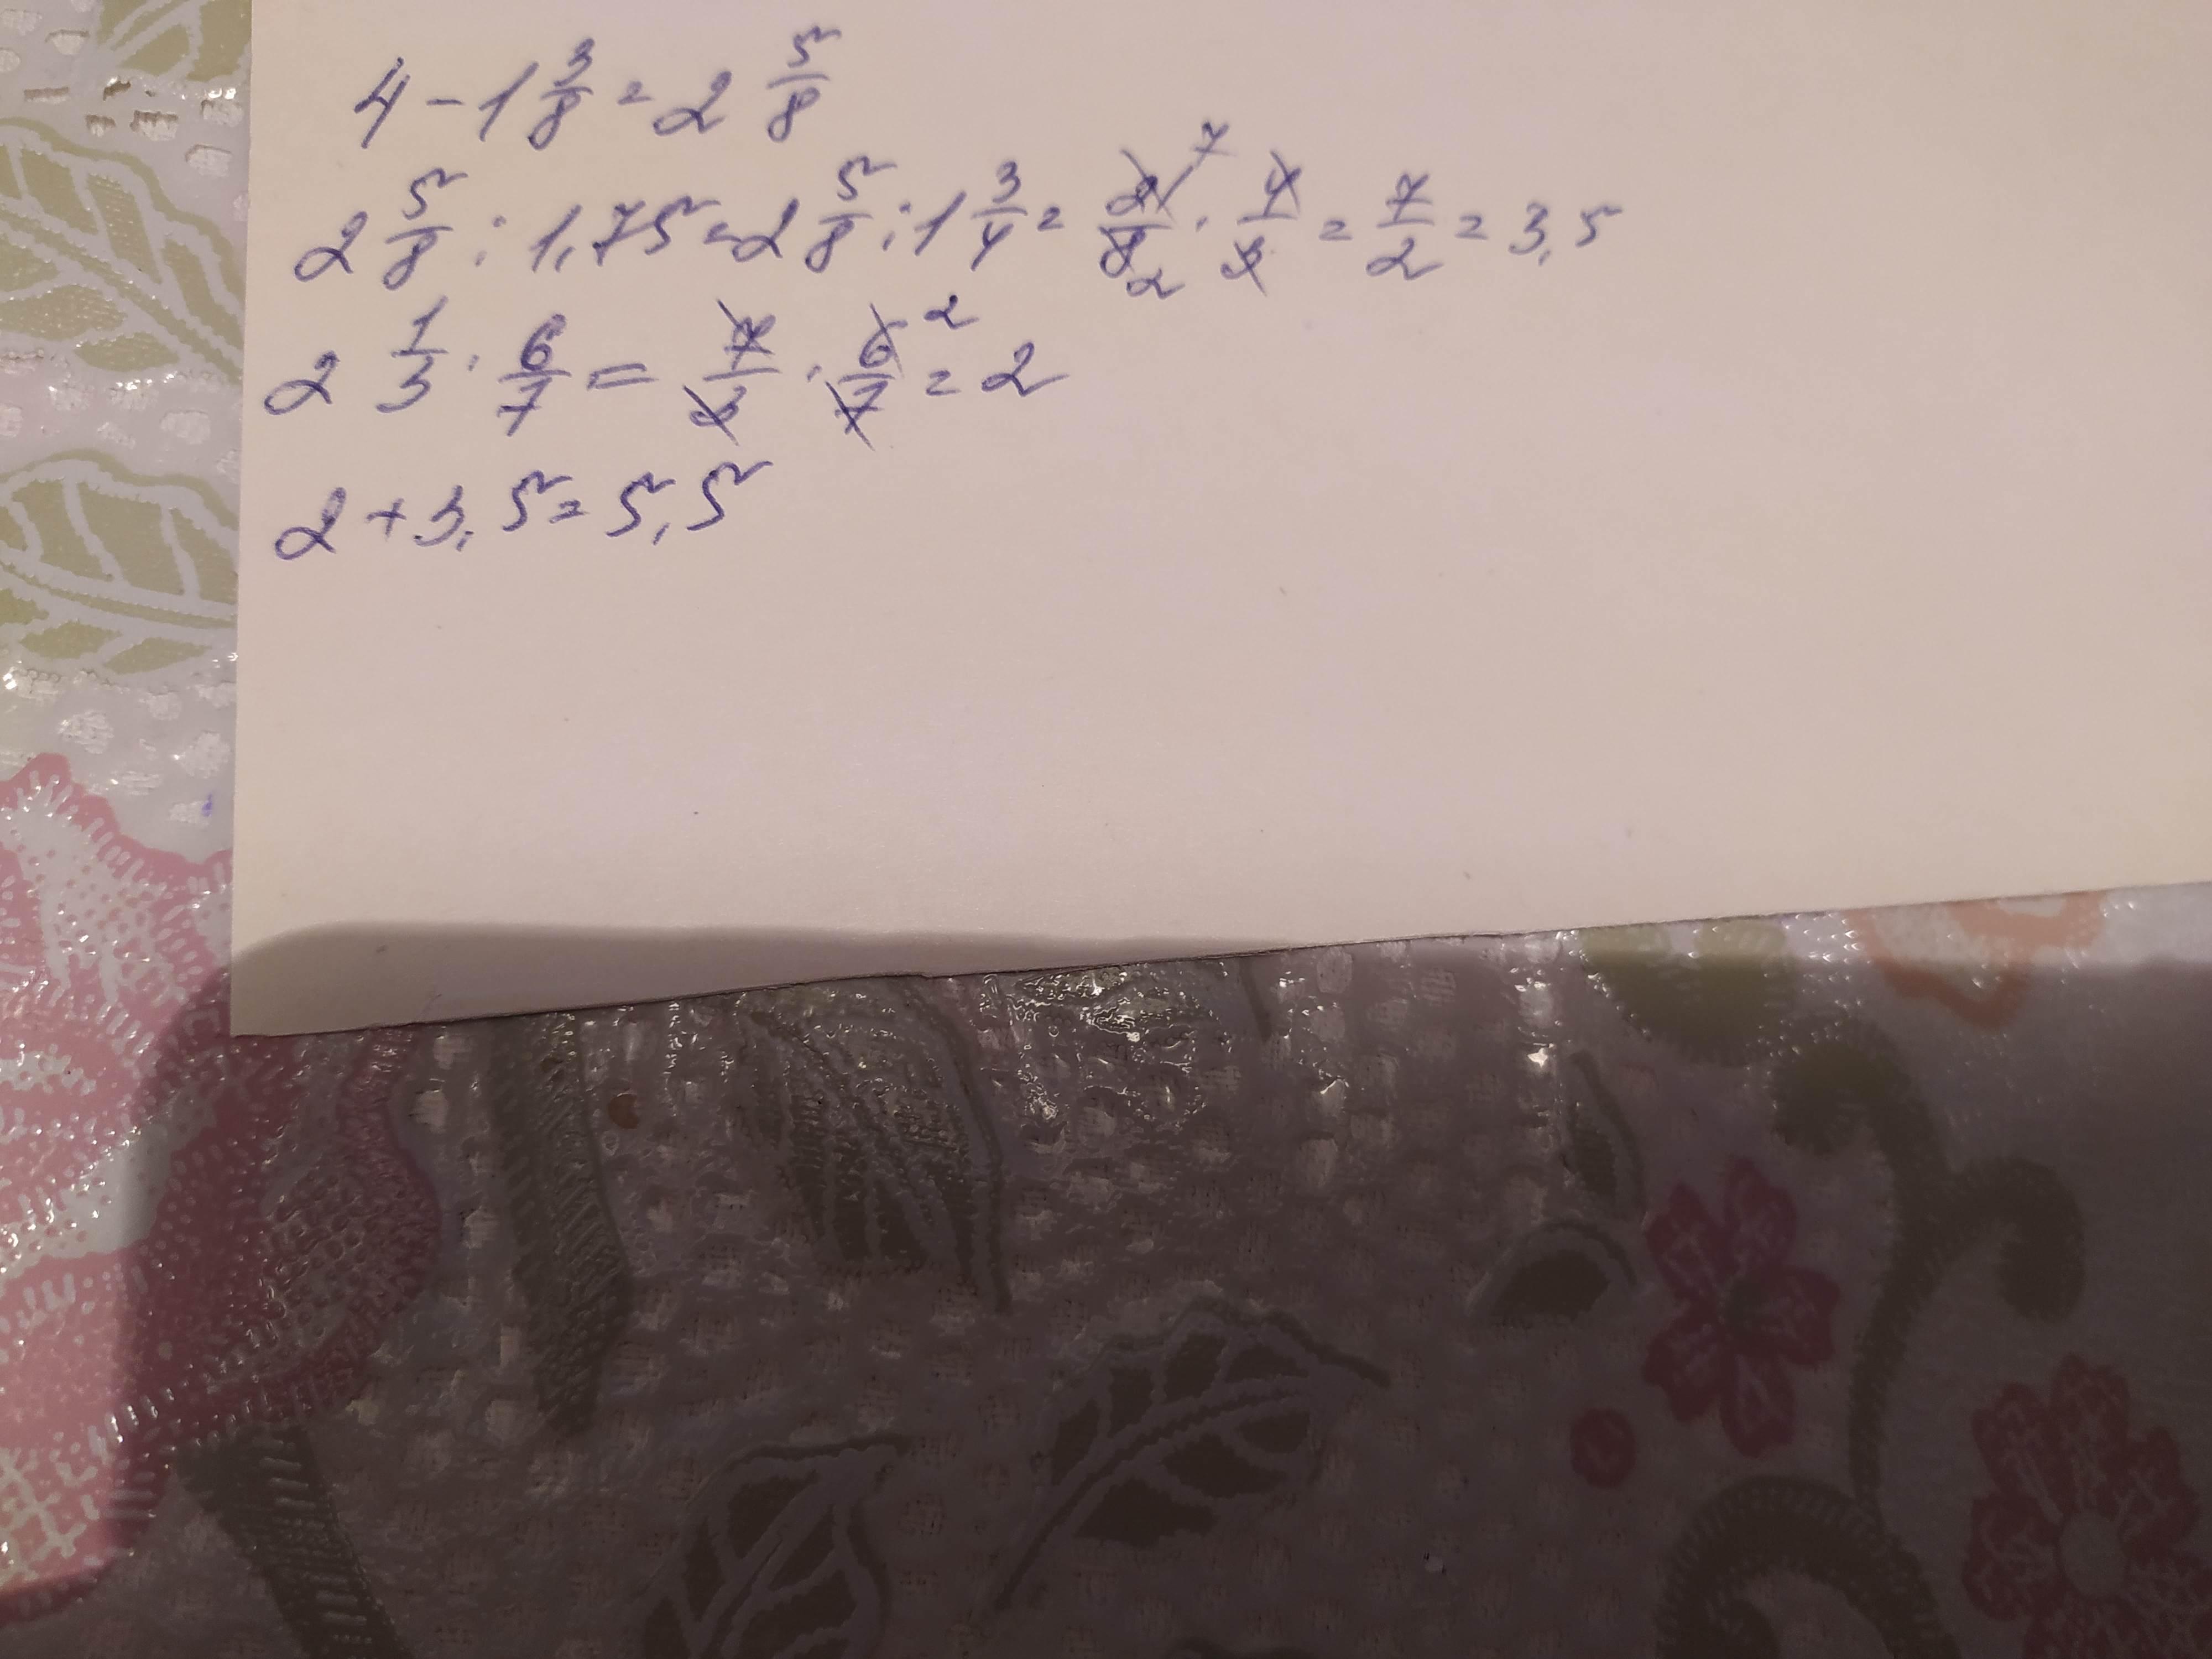 4 - 1 3/8 = 2 5/8
2 5/8 : 1,75 = 2 5/8 : 1 3/4 = 21/8 7 2 · 4/3 = 7/2 = 3,5
2 1/3 · 6/7 = 7/3 · 6/7 2 = 2
2 + 3,5 = 5,5